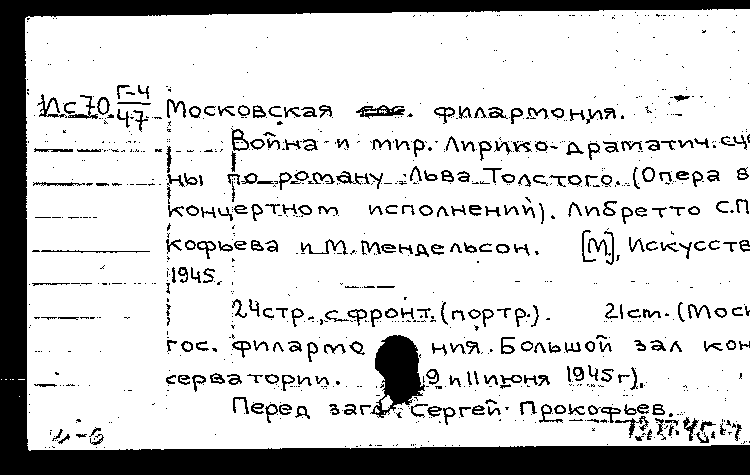 Ис70 Г-4/47 Московская гос. филармония.
Война и мир. Лирико-драматич. сце
ны по роману Льва Толстого. (Опера в
концертном исполнений). Либретто С.П
кофьева и М. Мендельсон. [М], Искусств
1945.
24стр., с фронт. (портр.). 21cm. (Моск
гос. филармо ния. Большой зал кон
серватории. 9 и 11 июня 1945г).
Перед загл. Сергей Прокофьев.